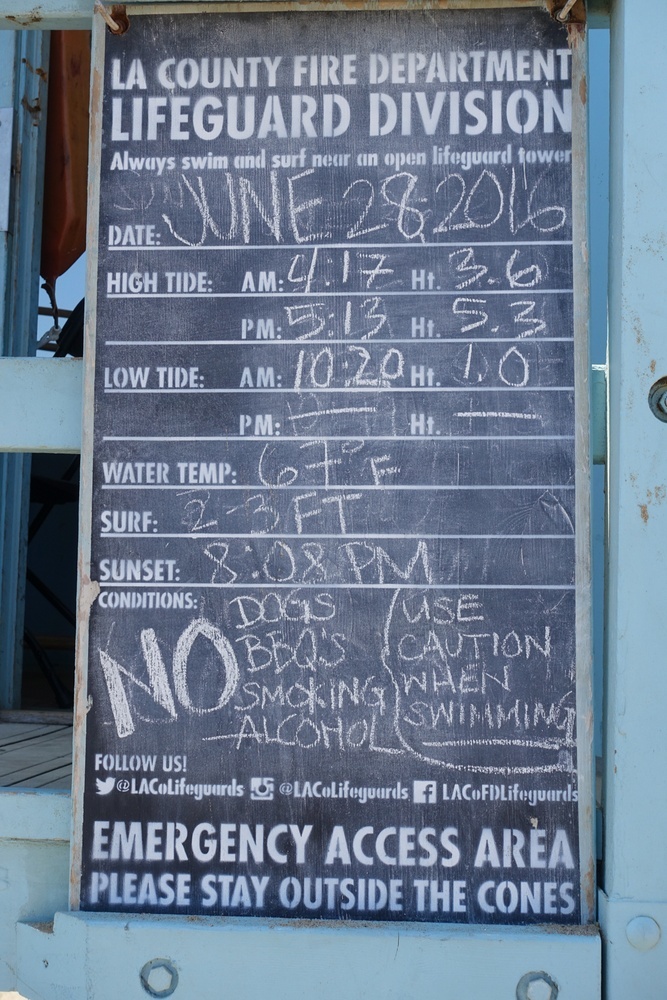 LA COUNTY FIRE DEPARTMENT
LIFEGUARD DIVISION
Always swim and surf near an open lifeguard tower
DATE: JUNE 28, 2016
HIGH TIDE: AM: 4:17 Ht. 3.6
PM: 5:13 Ht. 5.3
LOW TIDE: AM: 10:20 Ht. 1.0
PM: — Ht. —
WATER TEMP: 67° F
SURF: 2-3 FT
SUNSET: 8:08 PM
CONDITIONS:
NO DOGS
BBQ'S
SMOKING
ALCOHOL
USE
CAUTION
WHEN
SWIMMING
FOLLOW US!
@LACoLifeguards @LACoLifeguards LACoFDLifeguards
EMERGENCY ACCESS AREA
PLEASE STAY OUTSIDE THE CONES